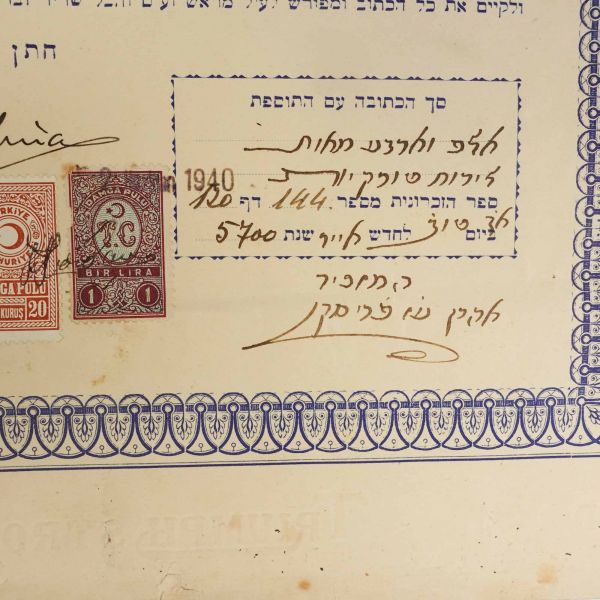 ולקיים את כל הכתוב ומפורש לעיל מראש והכל שריר
חתן
סך הכתובה עם התוספת
אלף וארבע מאות
לירות טורקיות
ספר הזכרונית מספר 144 דף 120
ביום לחדש אייר שנת 5700
המזכיר
אהרן
1940
DAMGA PULU
T.C
BIR LIRA
1 1
20
KURUŞ
TRIUMPH